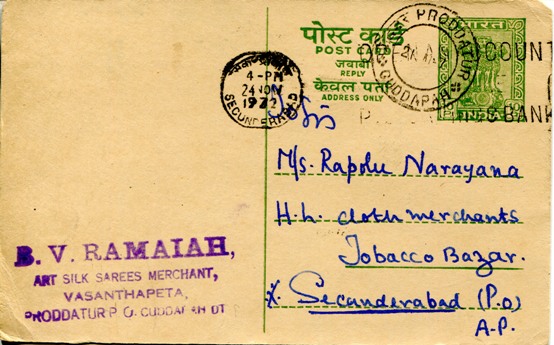 पोस्ट कार्ड
POST CARD
जवाबी
REPLY
केवल पता
ADDRESS ONLY
भारत
INDIA
PRODDATUR
CUDDAPAH
COUNT
BANK
4-PM
24 NOV
1972
SECUNDERABAD
M/s. Rapolu Narayana
H.L. cloth merchants
Tobacco Bazar.
X. Secunderabad (P.O)
A.P.
B. V. RAMAIAH,
ART SILK SAREES MERCHANT,
VASANTHAPETA,
PRODDATUR P O. CUDDAPAH DT